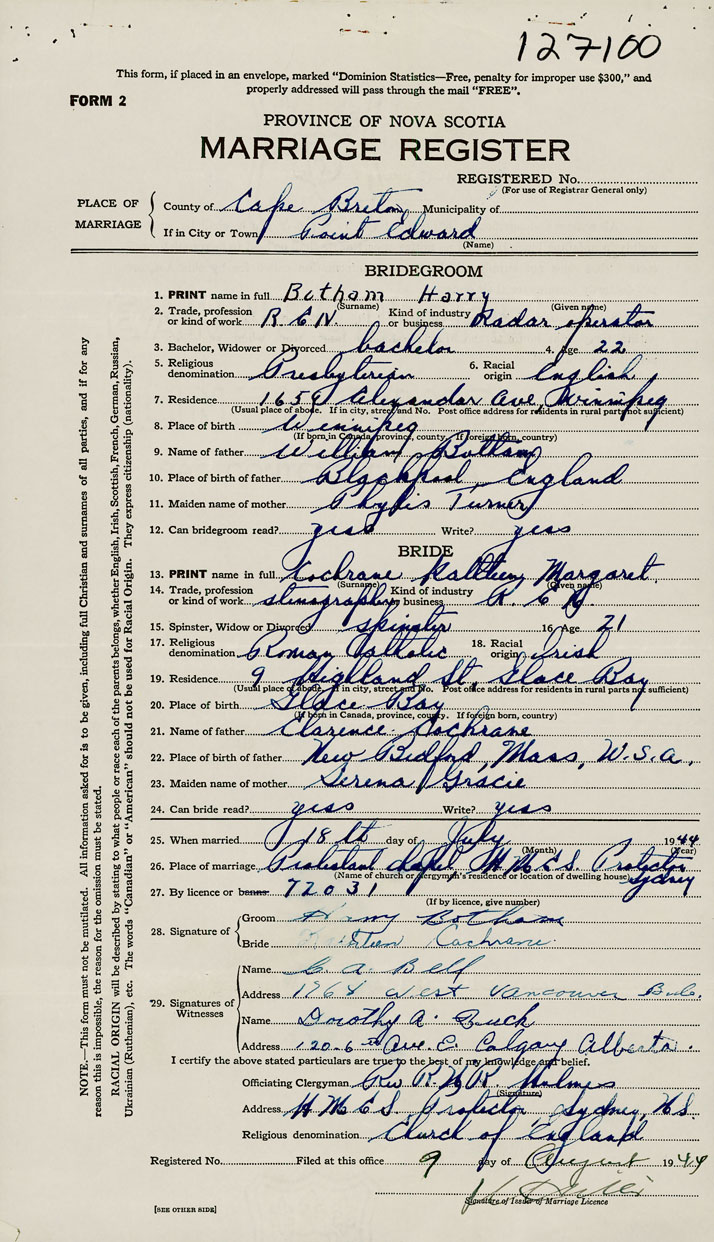 127100
This form, if placed in an envelope, marked "Dominion Statistics—Free, penalty for improper use $300," and
properly addressed will pass through the mail "FREE".
FORM 2
PROVINCE OF NOVA SCOTIA
MARRIAGE REGISTER
REGISTERED No.
(For use of Registrar General only)
PLACE OF MARRIAGE
County of Cape Breton Municipality of
If in City or Town Point Edward
(Name)
BRIDEGROOM
1. PRINT name in full Botham Harry
(Surname) (Given name)
2. Trade, profession or kind of work R C N. Kind of industry or business Radar operator
3. Bachelor, Widower or Divorced bachelor 4. Age 22
5. Religious denomination Presbyterian 6. Racial origin English
7. Residence 1659 Alexandar Ave, Winnipeg
(Usual place of abode. If in city, street and No. Post office address for residents in rural parts not sufficient)
8. Place of birth Winnipeg
(If born in Canada, province, county. If foreign born, country)
9. Name of father William Botham
10. Place of birth of father Blackpool, England
11. Maiden name of mother Phylis Turner
12. Can bridegroom read? yess Write? yess
BRIDE
13. PRINT name in full Cochrane Kathleen Margaret
(Surname) (Given name)
14. Trade, profession or kind of work stenographer Kind of industry or business R. C. N.
15. Spinster, Widow or Divorced spinster 16. Age 21
17. Religious denomination Roman Catholic 18. Racial origin Irish
19. Residence 9 Highland St, Glace Bay
(Usual place of abode. If in city, street and No. Post office address for residents in rural parts not sufficient)
20. Place of birth Glace Bay
(If born in Canada, province, county. If foreign born, country)
21. Name of father Clarence Cochrane
22. Place of birth of father New Bedford, Mass, U.S.A.
23. Maiden name of mother Serena Gracie
24. Can bride read? yess Write? yess
25. When married 18th day of July 1944
(Month) (Year)
26. Place of marriage Protestant chapel H M C S. Protector Sydney
(Name of church or clergyman's residence or location of dwelling house)
27. By licence or banns 72031
(If by licence, give number)
28. Signature of
Groom Harry Botham
Bride Kathleen Cochrane.
29. Signatures of Witnesses
Name A. Bell
Address 1964 West Vancouver B.C.
Name Dorothy A. Buck
Address 120-6th Ave. E. Calgary Alberta.
I certify the above stated particulars are true to the best of my knowledge and belief.
Officiating Clergyman Rev Holmes
(Signature)
Address H M C S. Protector Sydney, N S.
Religious denomination Church of England
Registered No. Filed at this office 9 day of August 1944
Signature of Issuer of Marriage Licence
[SEE OTHER SIDE]
NOTE.—This form must not be mutilated. All information asked for is to be given, including full Christian and surnames of all parties, and if for any
reason this is impossible, the reason for the omission must be stated.
RACIAL ORIGIN will be described by stating to what people or race each of the parents belongs, whether English, Irish, Scottish, French, German, Russian,
Ukrainian (Ruthenian), etc. The words "Canadian" or "American" should not be used for Racial Origin. They express citizenship (nationality).